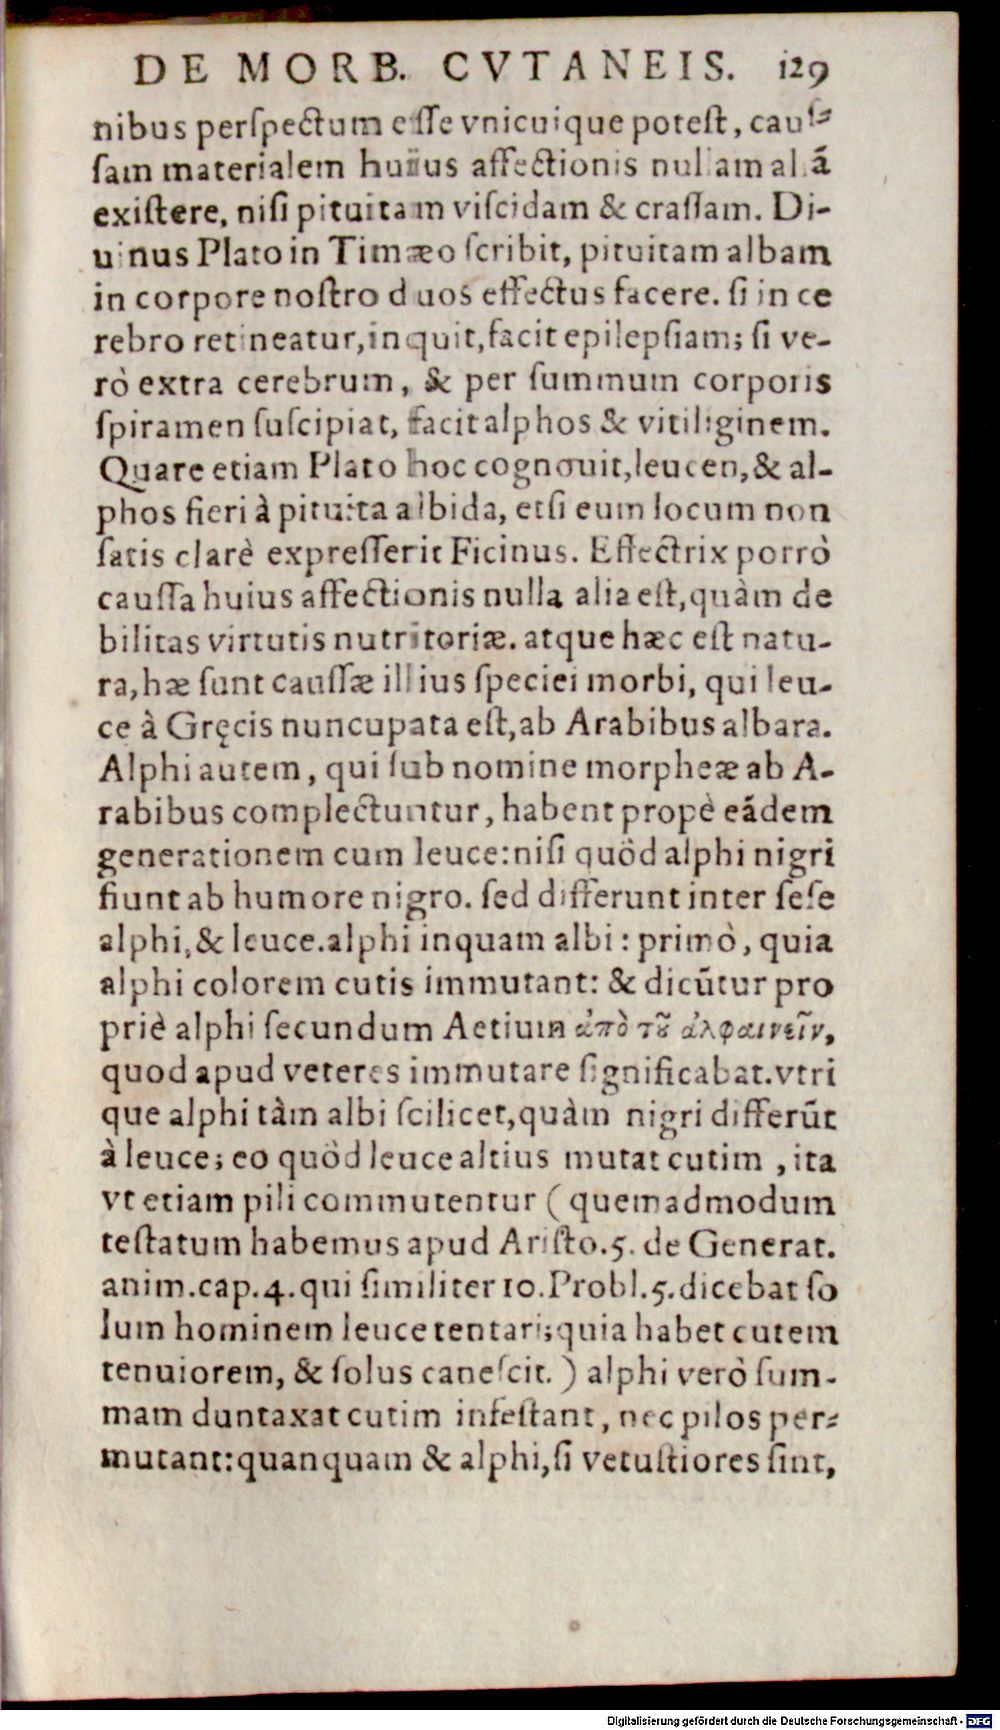 DE MORB. CVTANEIS. 129
nibus perſpectum eſſe vnicuique poteſt, cauſ-
ſam materialem huius affectionis nullam aliã
exiſtere, niſi pituitam viſcidam & craſſam. Di-
uinus Plato in Timæo ſcribit, pituitam albam
in corpore noſtro duos effectus facere. ſi in ce
rebro retineatur, inquit, facit epilepſiam; ſi ve-
rò extra cerebrum, & per ſummum corporis
ſpiramen ſuſcipiat, facit alphos & vitiliginem.
Quare etiam Plato hoc cognouit, leucen, & al-
phos fieri à pituita albida, etſi eum locum non
ſatis clarè expreſſerit Ficinus. Effectrix porrò
cauſſa huius affectionis nulla alia eſt, quàm de
bilitas virtutis nutritoriæ. atque hæc eſt natu-
ra, hæ ſunt cauſſæ illius ſpeciei morbi, qui leu-
ce à Gręcis nuncupata eſt, ab Arabibus albara.
Alphi autem, qui ſub nomine morpheæ ab A-
rabibus complectuntur, habent propè eãdem
generationem cum leuce: niſi quòd alphi nigri
fiunt ab humore nigro. ſed differunt inter ſeſe
alphi, & leuce. alphi inquam albi: primò, quia
alphi colorem cutis immutant: & dicũtur pro
priè alphi ſecundum Aetium ἀπὸ τοῦ ἀλφαινεῖν,
quod apud veteres immutare ſignificabat. vtri
que alphi tàm albi ſcilicet, quàm nigri differũt
à leuce; eo quòd leuce altius mutat cutim, ita
vt etiam pili commutentur (quemadmodum
teſtatum habemus apud Ariſto. 5. de Generat.
anim. cap. 4. qui ſimiliter 10. Probl. 5. dicebat ſo
lum hominem leuce tentari; quia habet cutem
tenuiorem, & ſolus caneſcit.) alphi verò ſum-
mam duntaxat cutim infeſtant, nec pilos per-
mutant: quanquam & alphi, ſi vetuſtiores ſint,
Digitalisierung gefördert durch die Deutsche Forschungsgemeinschaft - DFG